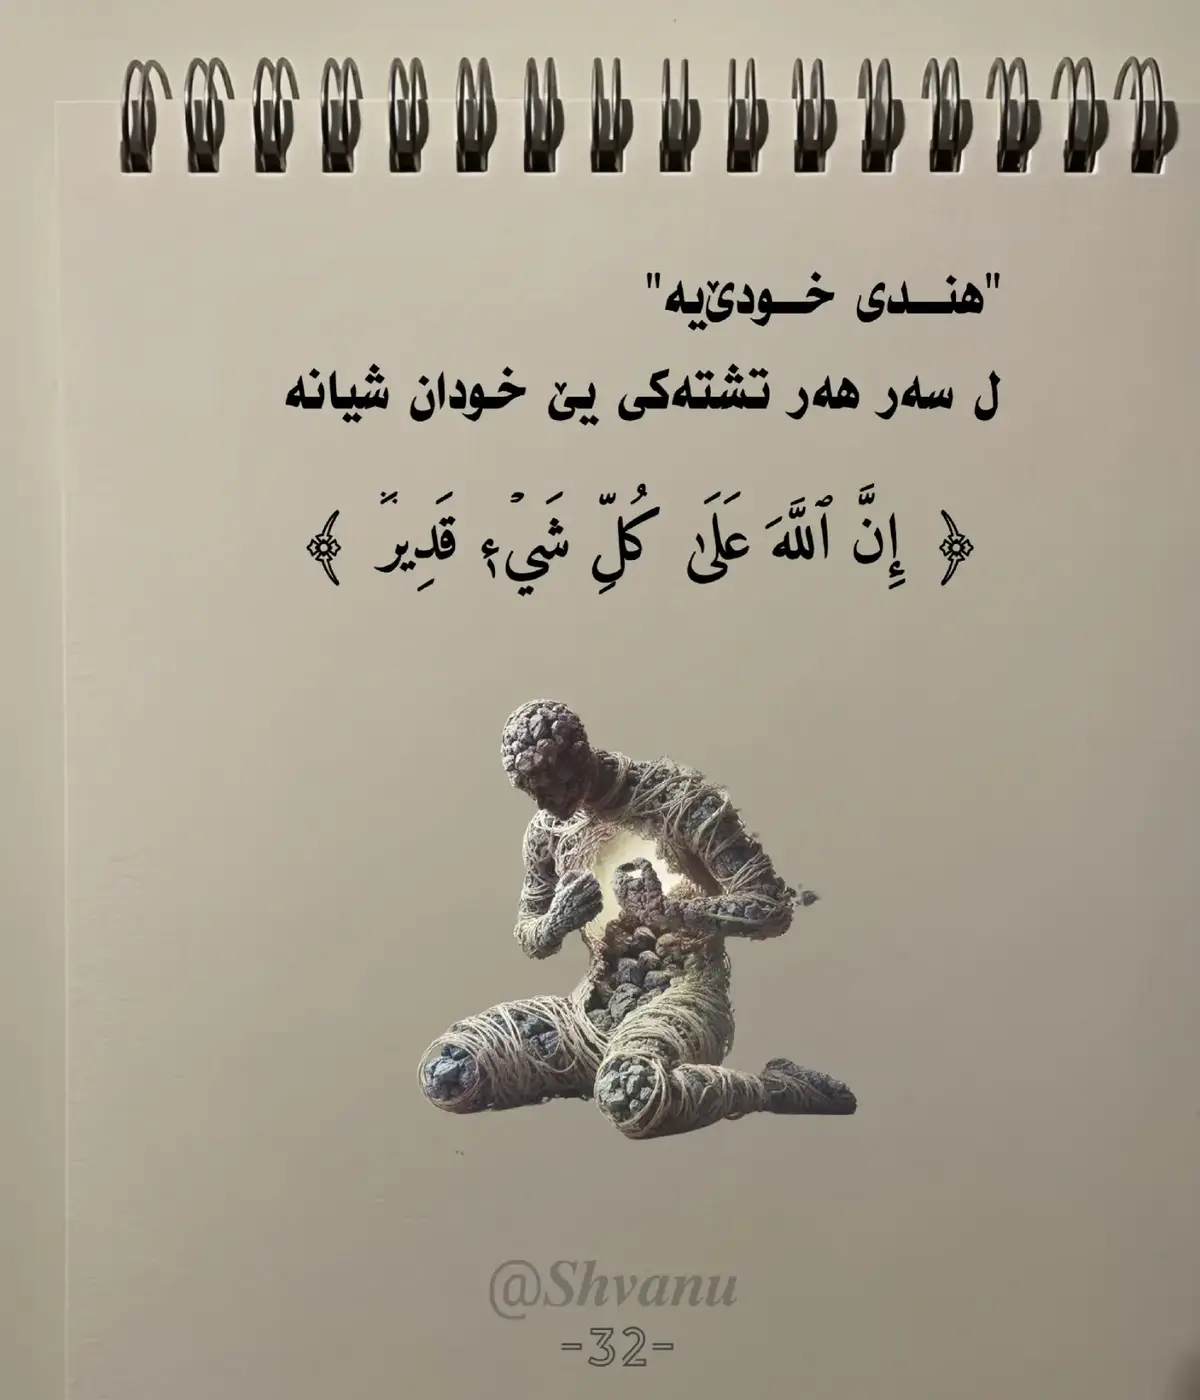 "هنـــدی خـــودێ‌یه"
ل سەر هەر تشتەکی یێ خودان شیانه
﴿ إِنَّ ٱللَّهَ عَلَىٰ كُلِّ شَيْءٍ قَدِيرٌ ﴾
@Shvanu
-32-